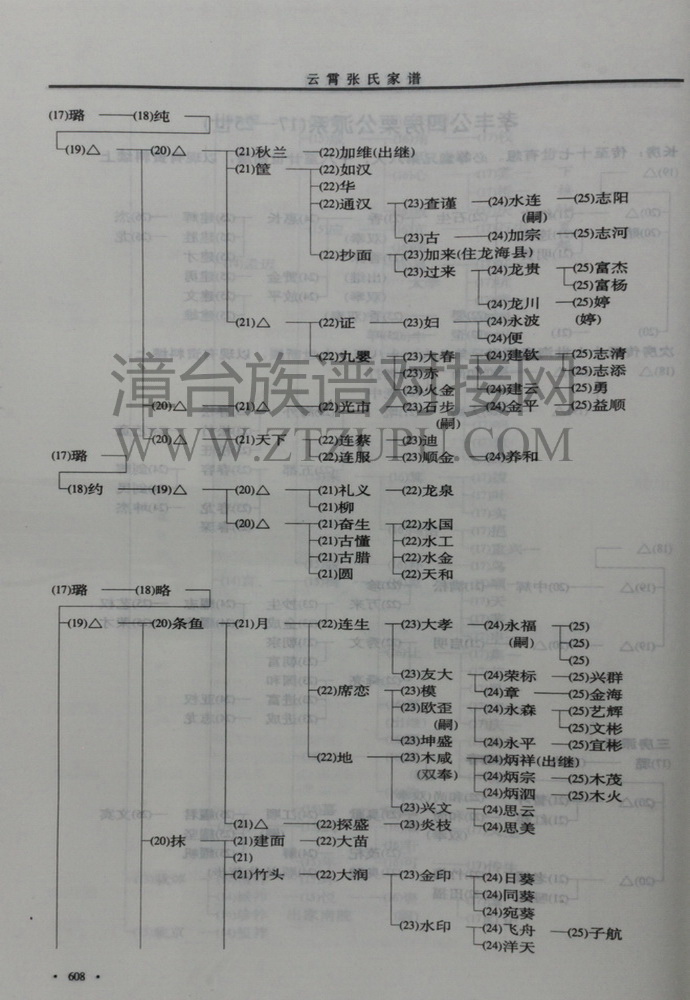 云霄张氏家谱
(17)璐 (18)纯
(19)△ (20)△ (21)秋兰 (22)加维(出继)
(21)筐 (22)如汉
(22)华
(22)通汉 (23)查谨 (24)水连 (25)志阳
(嗣)
(23)古 (24)加宗 (25)志河
(22)抄面 (23)加来(住龙海县)
(23)过来 (24)龙贵 (25)富杰
(25)富杨
(24)龙川 (25)婷
(21)△ (22)证 (23)妇 (24)永波 (婷)
(24)便
(22)九婴 (23)大春 (24)建钦 (25)志清
(23)赤 (25)志添
(23)火金 (24)建云 (25)勇
(20)△ (21)△ (22)光市 (23)石步 (24)金平 (25)益顺
(嗣)
(20)△ (21)天下 (22)连蔡 (23)迪
(17)璐 (22)连服 (23)顺金 (24)养和
(18)约 (19)△ (20)△ (21)礼义 (22)龙泉
(21)柳
(20)△ (21)奋生 (22)水国
(21)古懂 (22)水工
(21)古腊 (22)水金
(21)圆 (22)天和
(17)璐 (18)略
(19)△ (20)条鱼 (21)月 (22)连生 (23)大孝 (24)永福 (25)
(嗣) (25)
(25)
(23)友大 (24)荣标 (25)兴群
(22)席恋 (23)模 (24)章 (25)金海
(23)欧歪 (24)永森 (25)艺辉
(嗣) (25)文彬
(23)坤盛 (24)永平 (25)宜彬
(22)地 (23)木咸 (24)炳祥(出继)
(双奉) (24)炳宗 (25)木茂
(24)炳泗 (25)木火
(23)兴文 (24)思云
(21)△ (22)探盛 (23)炎枝 (24)思美
(20)抹 (21)建面 (22)大苗
(21)
(21)竹头 (22)大润 (23)金印 (24)日葵
(24)同葵
(24)宛葵
(23)水印 (24)飞舟 (25)子航
(24)洋天
· 608 ·
漳台族谱对接网
WWW.ZTZUPU.COM